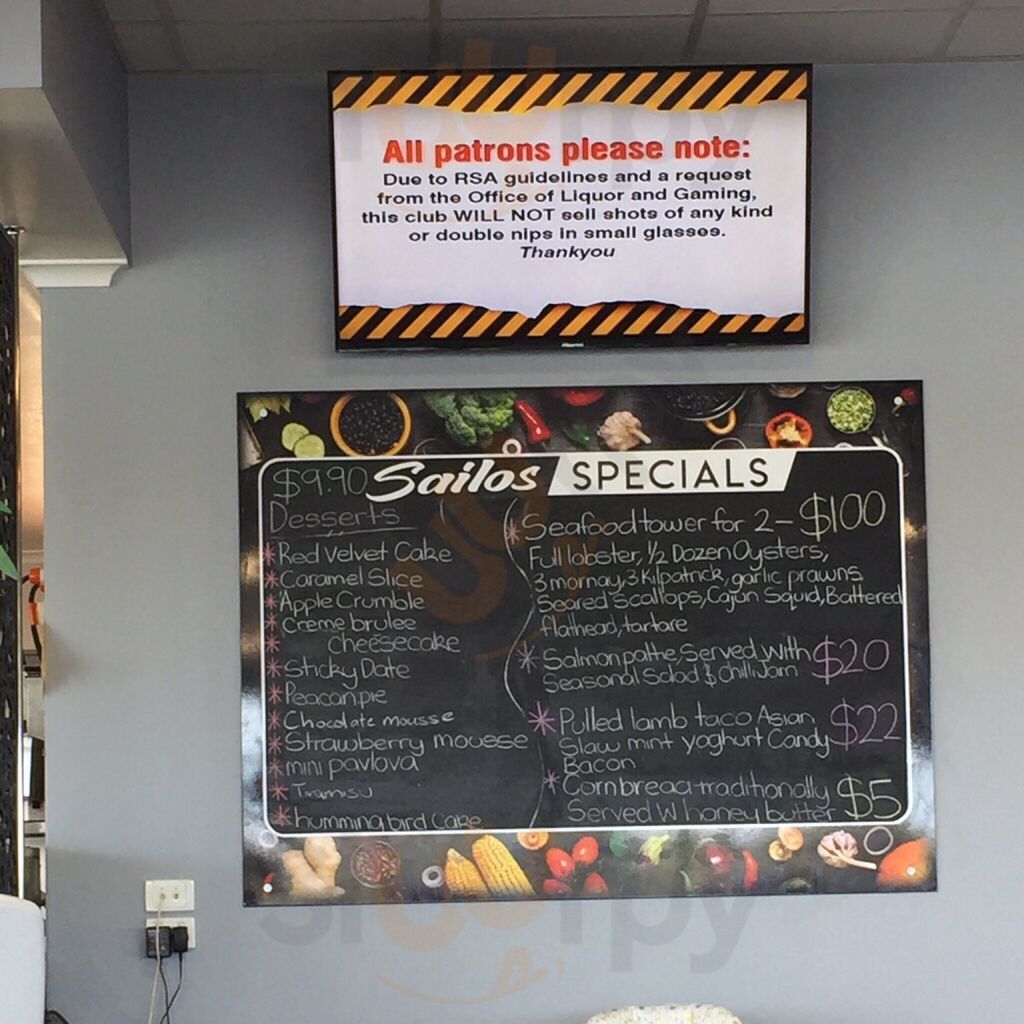 All patrons please note:
Due to RSA guidelines and a request
from the Office of Liquor and Gaming,
this club WILL NOT sell shots of any kind
or double nips in small glasses.
Thankyou
Hisense
Sailos SPECIALS
$9.90
Desserts
* Red Velvet Cake
* Caramel Slice
* Apple Crumble
* Creme brulee
* Cheesecake
* Sticky Date
* Peacan pie
* Chocolate mousse
* Strawberry mousse
* mini pavlova
* Tiramisu
* humming bird Cake
* Seafood tower for 2 - $100
Full lobster, 1/2 Dozen Oysters,
3 mornay, 3 kilpatrick, garlic prawns
Seared Scallops, Cajun Squid, Battered
flathead, tartare
* Salmon pattie, Served with $20
Seasonal Salad & chilli Jam
* Pulled lamb taco Asian $22
Slaw mint yoghurt Candy
Bacon
* Corn bread traditionally $5
Served W honey butter
Sluurpy